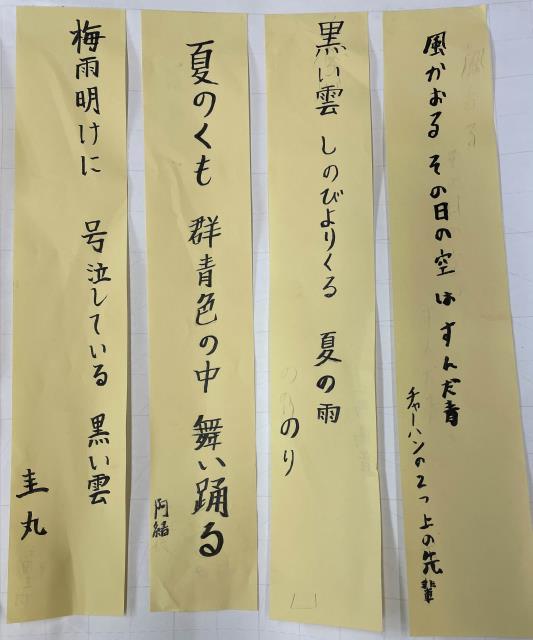 風かおる その日の空は すんだ青
チャーハンの2つ上の先輩
黒い雲 しのびよりくる 夏の雨
のり
夏のくも 群青色の中 舞い踊る
阿結
梅雨明けに 号泣している 黒い雲
圭丸